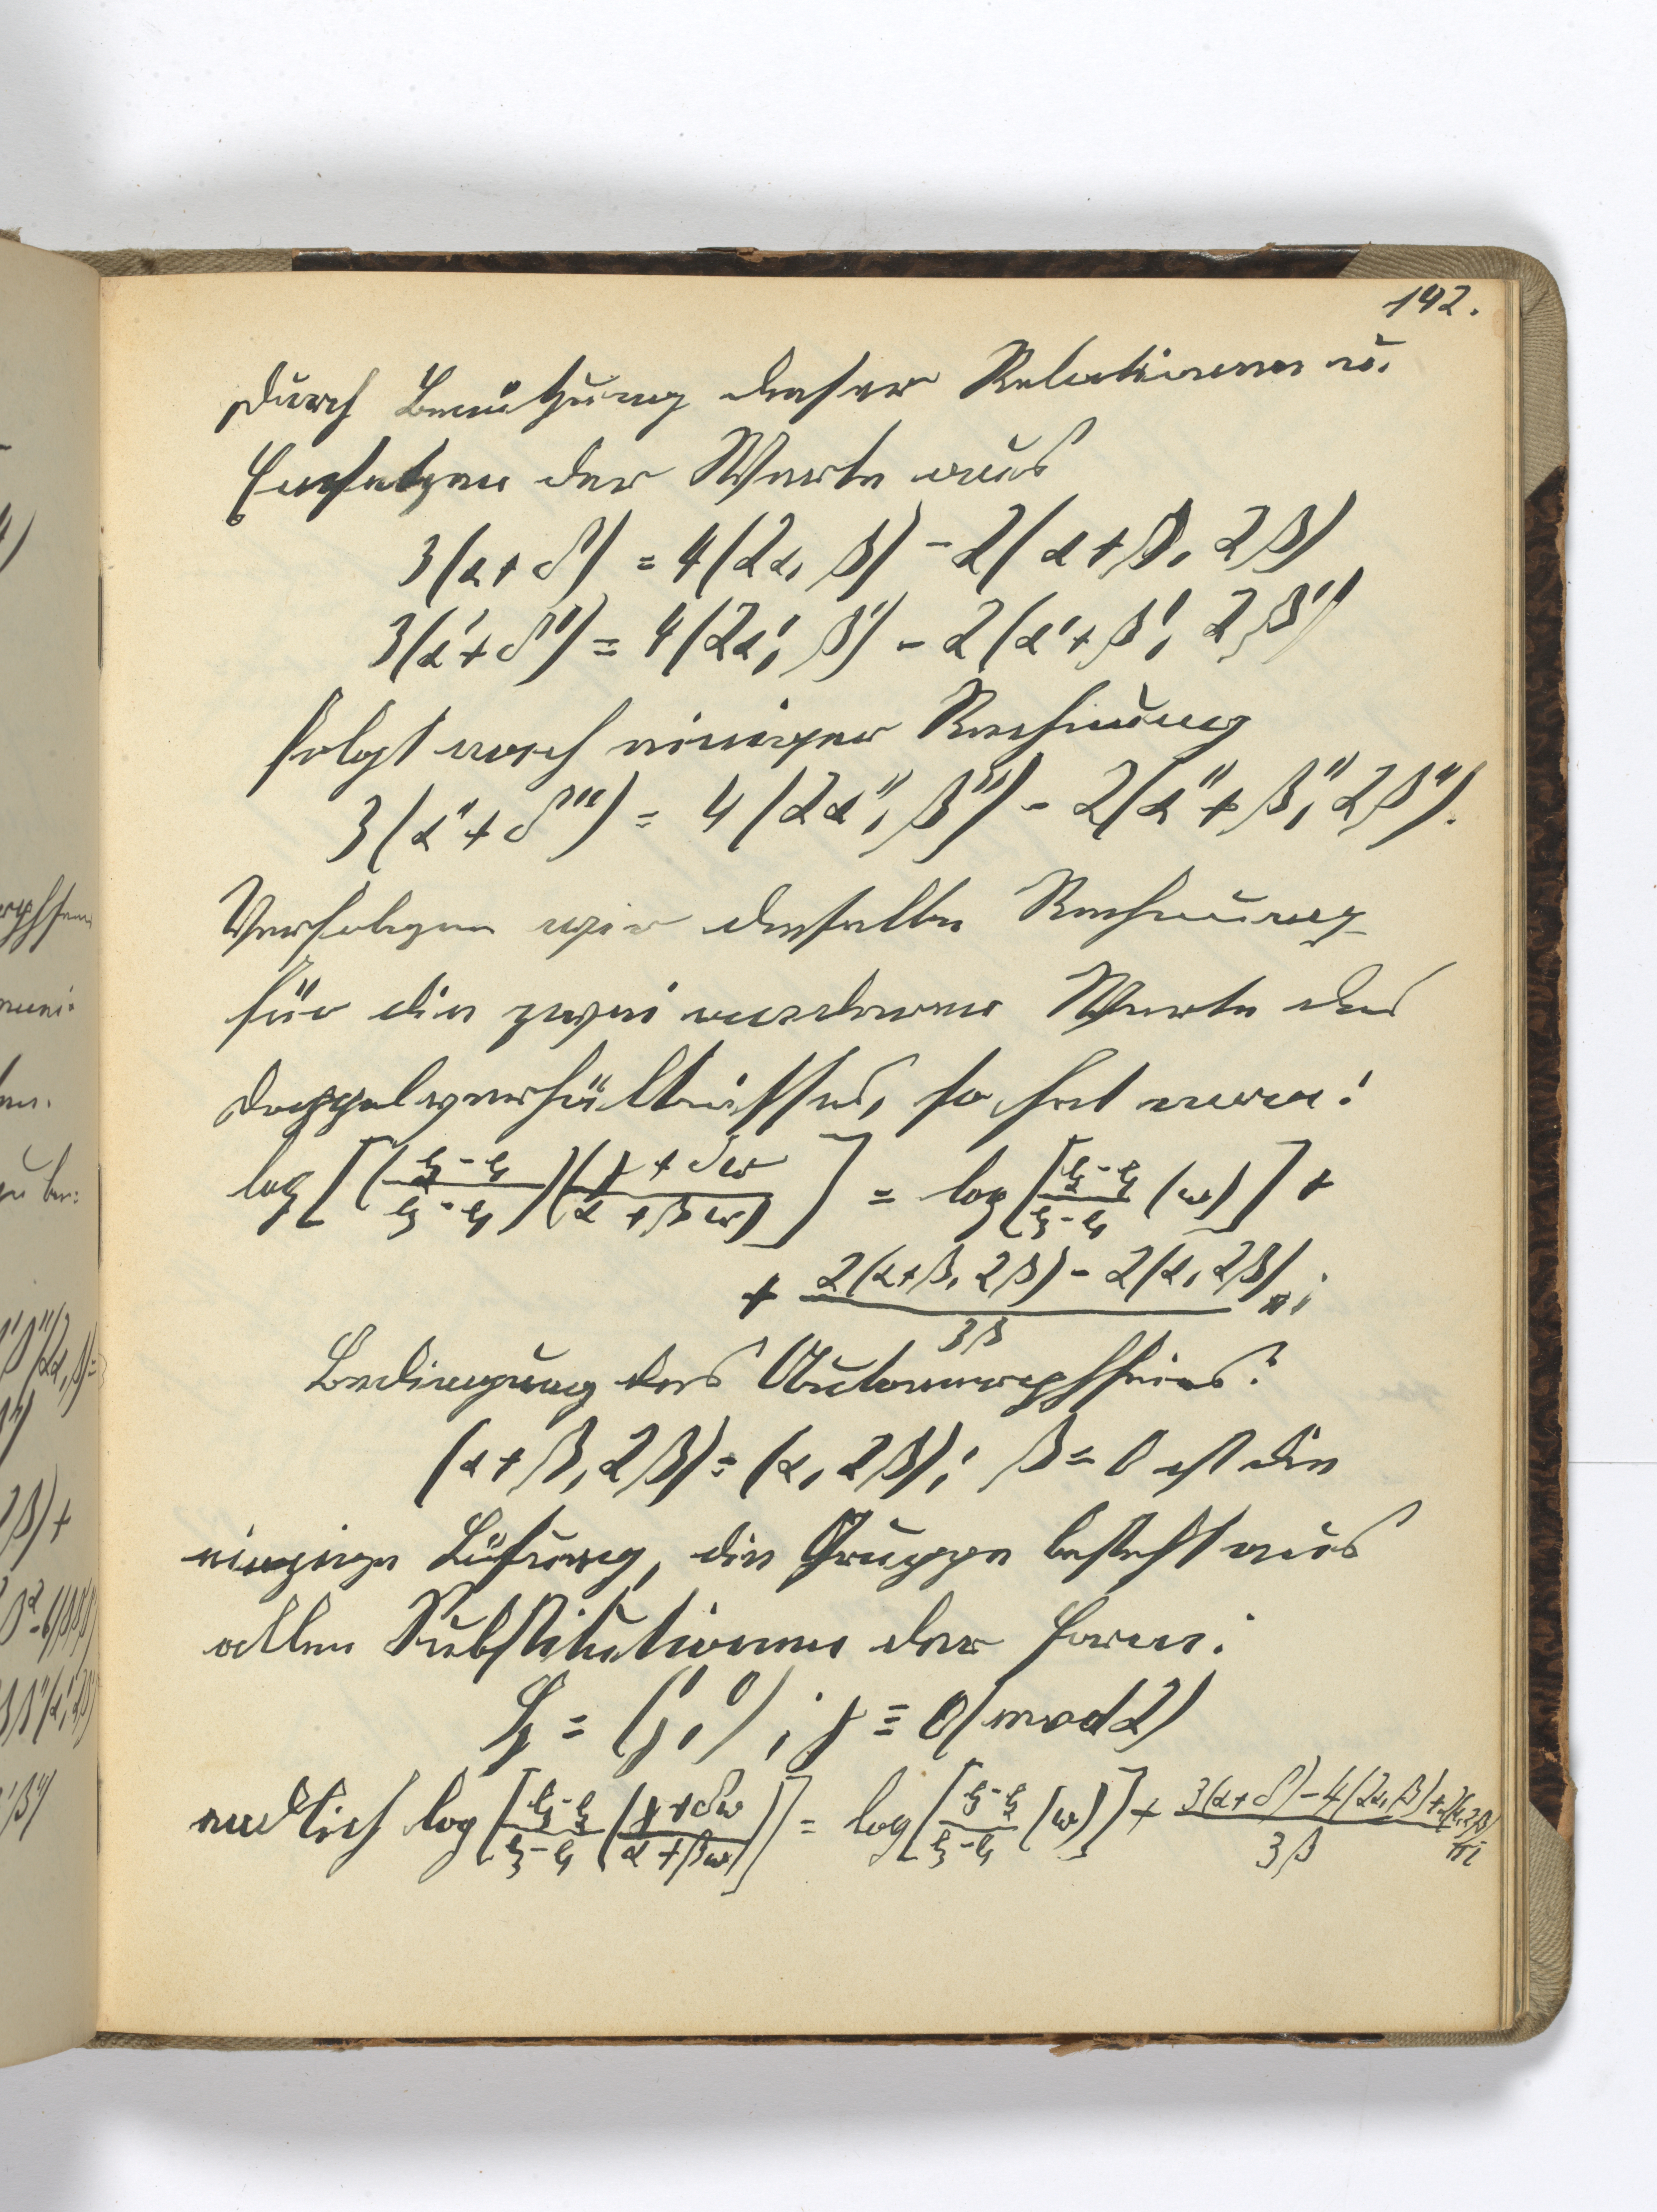 142.
Durch Benützung dieser Relationen u.
Einsetzen der Werte aus
3(α+δ) = 4(2α, β) - 2(α+β, 2β)
3(α'+δ') = 4(2α', β') - 2(α'+β', 2β')
folgt nach einiger Rechnung
3(α''+δ''') = 4(2α'', β'') - 2(α''+β'', 2β'').
Verfolgen wir dieselbe Rechnung
für die zwei anderen Werte des
Doppelverhältnisses, so hat man:
log[(e₂-e₁/e₃-e₁)(γ+δω/α+βω)] = log[e₂-e₁/e₃-e₁ (ω)] +
+ 2(α+β, 2β) - 2(α, 2β)/3β πi
Bedingung des Automorphseins:
(α+β, 2β) = (α, 2β); β = 0 ist die
einzige Lösung, die Gruppe besteht aus
allen Substitutionen der Form:
= (1, 0 / γ, 1); γ ≡ 0 (mod 2)
endlich log[e₁-e₂/e₃-e₁ (γ+δω/α+βω)] = log[e₁-e₂/e₃-e₁ (ω)] + 3(α+δ) - 4(2α, β) + 2(α, 2β)/3β πi